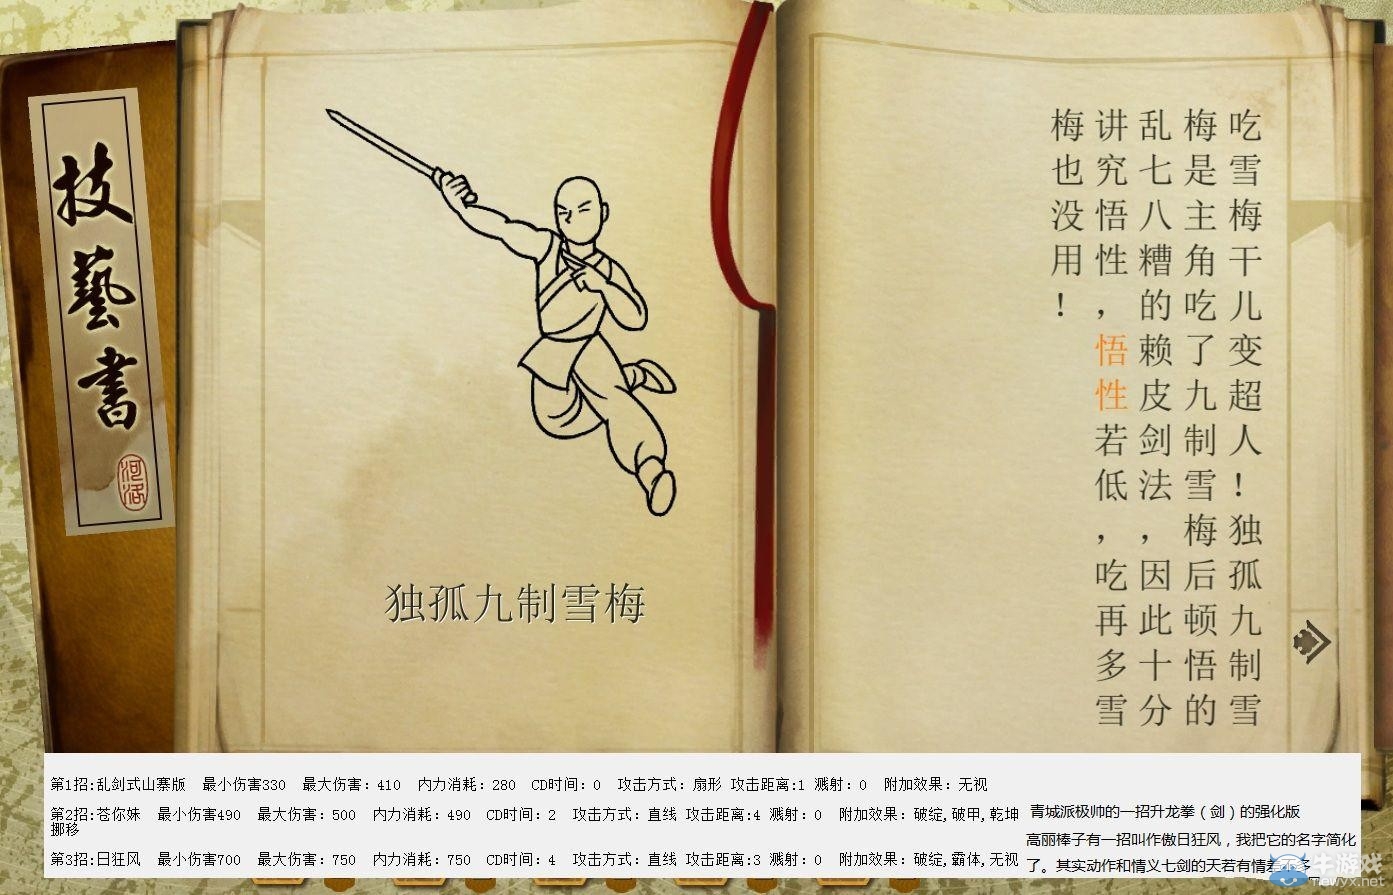 技藝書
河洛
独孤九制雪梅
吃雪梅干儿变超人！独孤九制雪
梅是主角吃了九制雪梅后顿悟的
乱七八糟的赖皮剑法，因此十分
讲究悟性，悟性若低，吃再多雪
梅也没用！
第1招:乱剑式山寨版 最小伤害330 最大伤害：410 内力消耗：280 CD时间：0 攻击方式：扇形 攻击距离:1 溅射：0 附加效果：无视
第2招:苍你妹 最小伤害490 最大伤害：500 内力消耗：490 CD时间：2 攻击方式：直线 攻击距离:4 溅射：0 附加效果：破绽,破甲,乾坤
挪移
第3招:日狂风 最小伤害700 最大伤害：750 内力消耗：750 CD时间：4 攻击方式：直线 攻击距离:3 溅射：0 附加效果：破绽,霸体,无视
青城派极帅的一招升龙拳（剑）的强化版
高丽棒子有一招叫作傲日狂风，我把它的名字简化
了。其实动作和情义七剑的天若有情差不多
牛游戏
Newyx.net